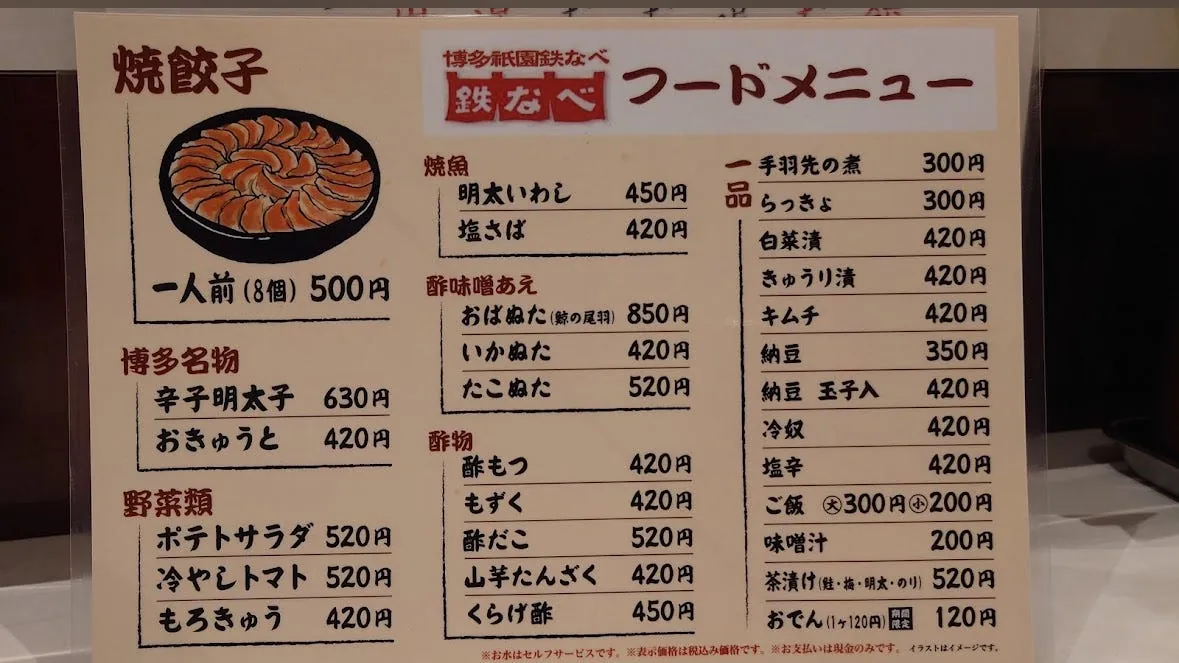 焼餃子
一人前(8個) 500円
博多名物
辛子明太子 630円
おきゅうと 420円
野菜類
ポテトサラダ 520円
冷やしトマト 520円
もろきゅう 420円
博多祇園鉄なべ
鉄なべ
フードメニュー
焼魚
明太いわし 450円
塩さば 420円
酢味噌あえ
おばぬた(鯨の尾羽) 850円
いかぬた 420円
たこぬた 520円
酢物
酢もつ 420円
もずく 420円
酢だこ 520円
山芋たんざく 420円
くらげ酢 450円
一品
手羽先の煮 300円
らっきょ 300円
白菜漬 420円
きゅうり漬 420円
キムチ 420円
納豆 350円
納豆 玉子入 420円
冷奴 420円
塩辛 420円
ご飯 ㊛300円㊙200円
味噌汁 200円
茶漬け(鮭・梅・明太・のり) 520円
おでん(1ヶ120円) 期間限定 120円
※お水はセルフサービスです。※表示価格は税込み価格です。※お支払いは現金のみです。 イラストはイメージです。